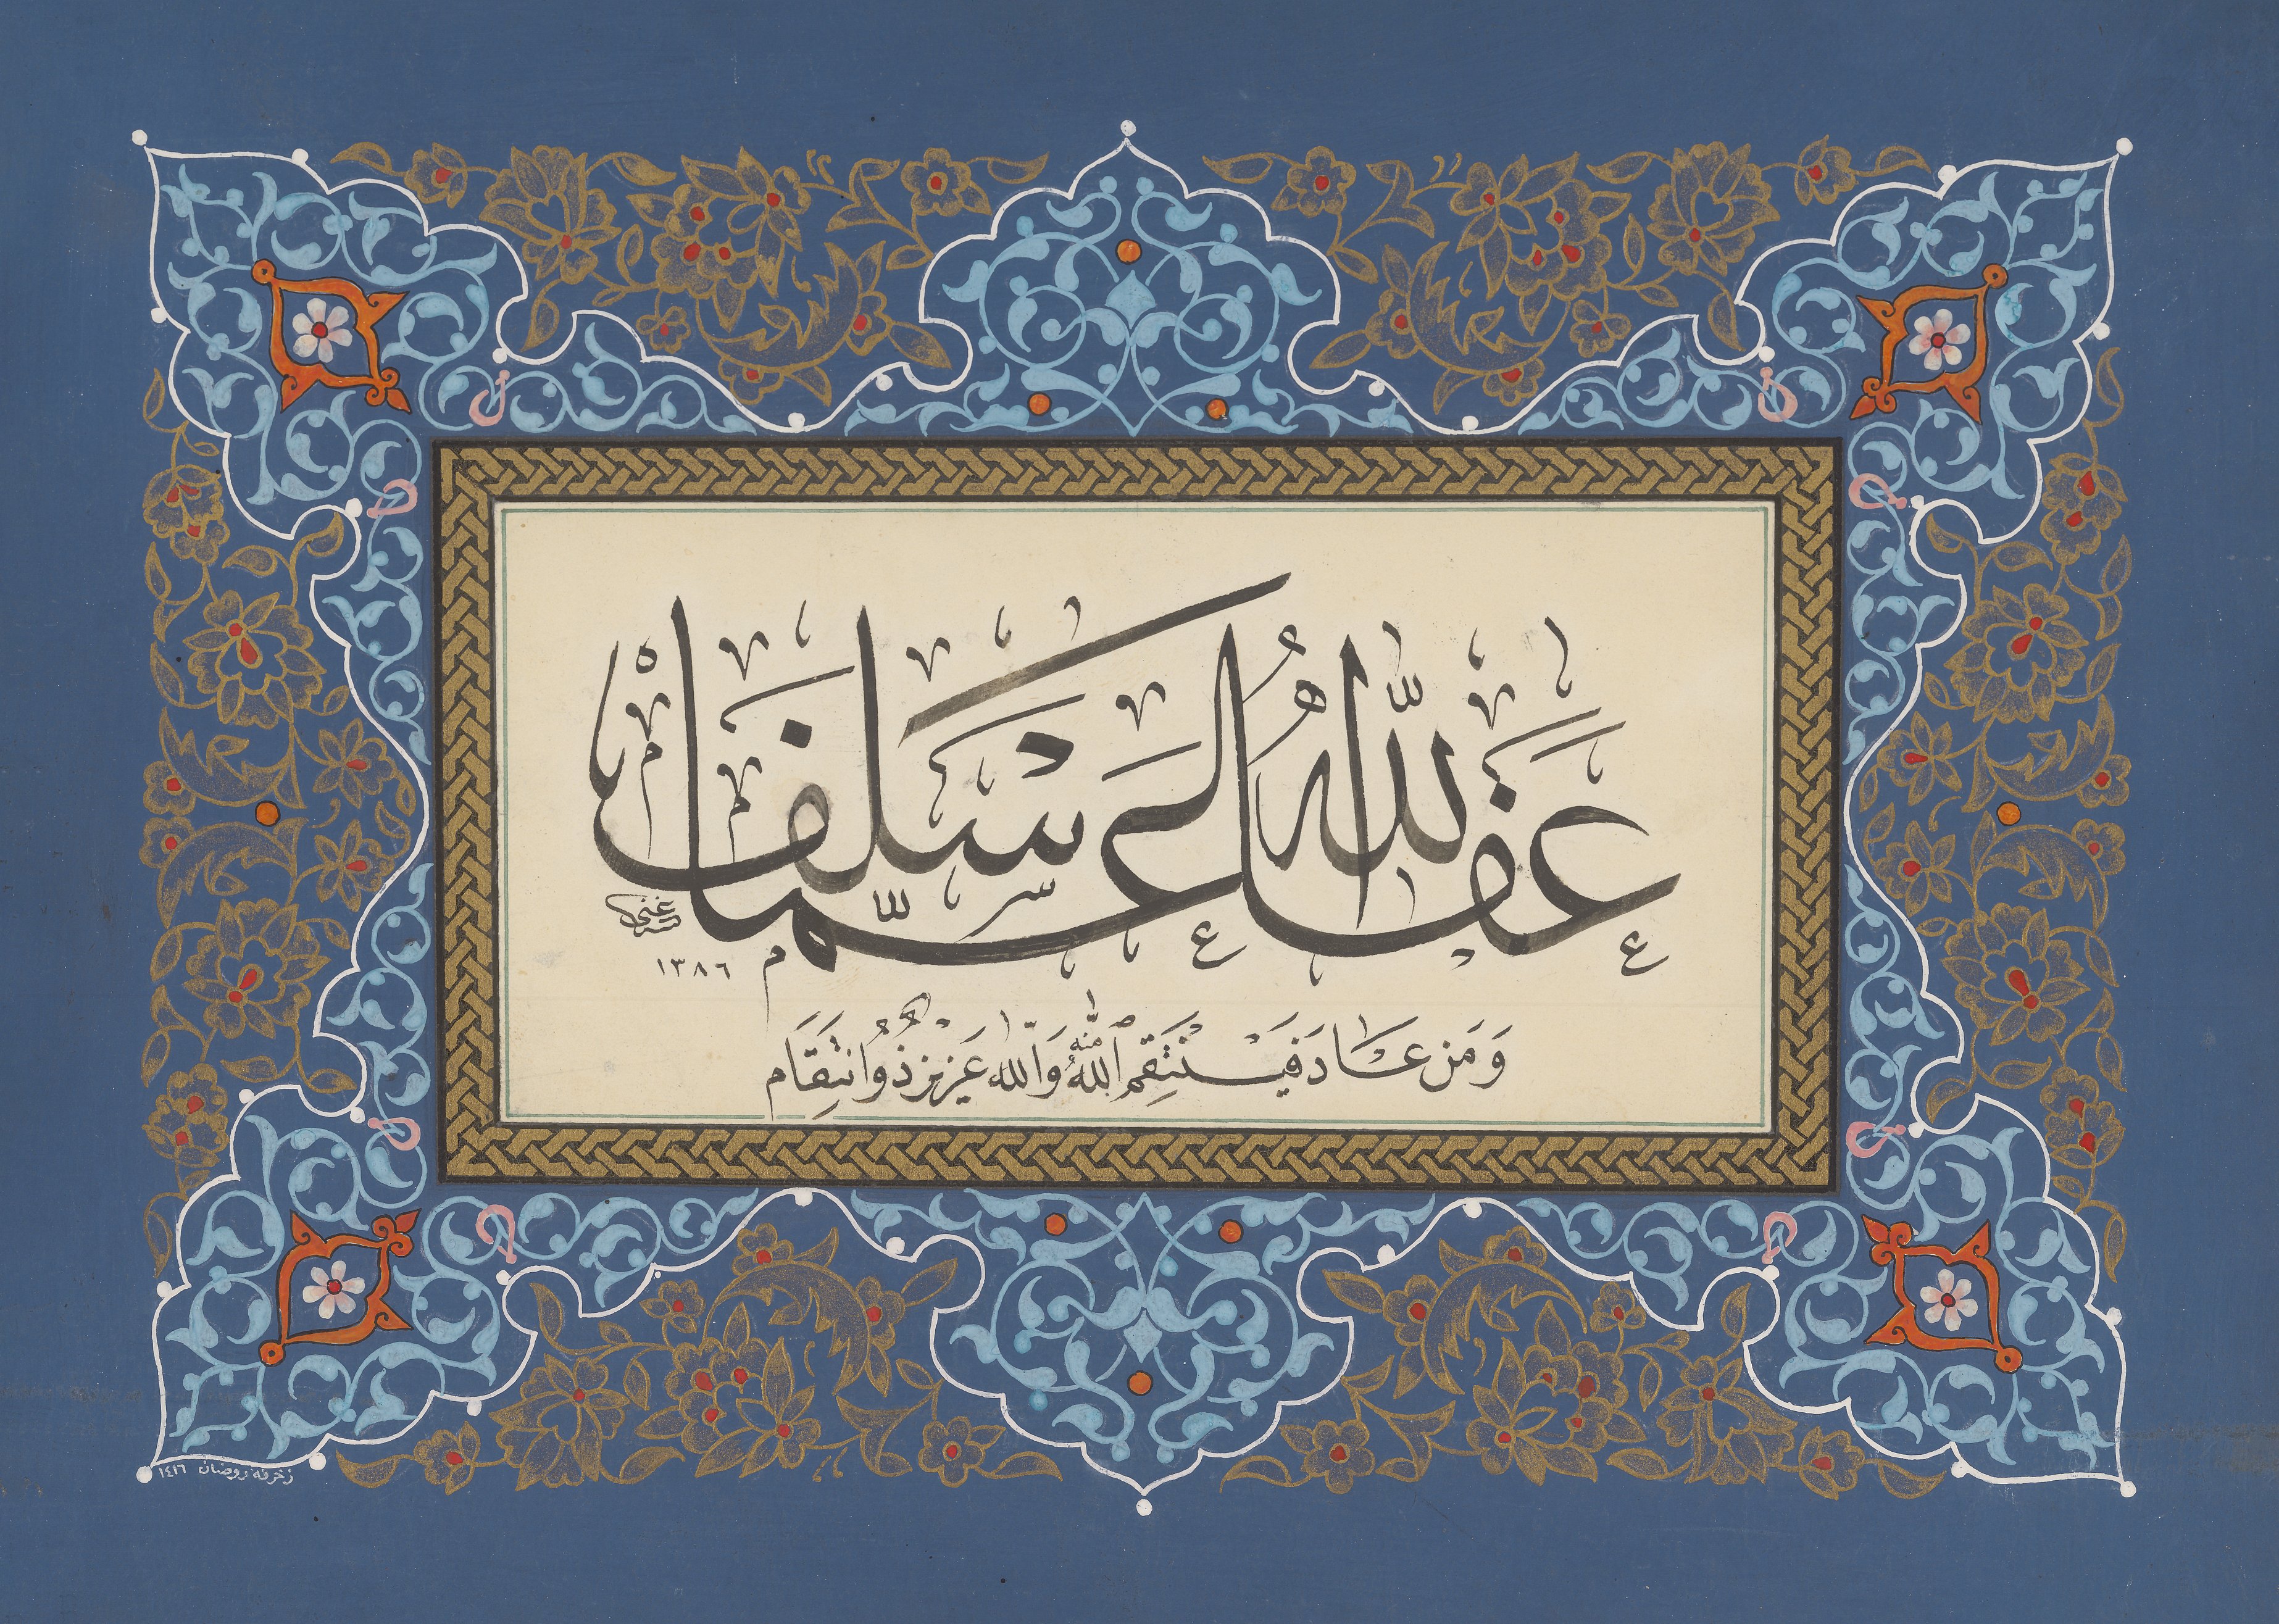 عَفَا اللَّهُ عَمَّا سَلَفَ
١٣٨٦
وَمَنْ عَادَ فَيَنْتَقِمُ اللَّهُ مِنْهُ وَاللَّهُ عَزِيزٌ ذُو انْتِقَام
زخرفه روضان ١٤١٦